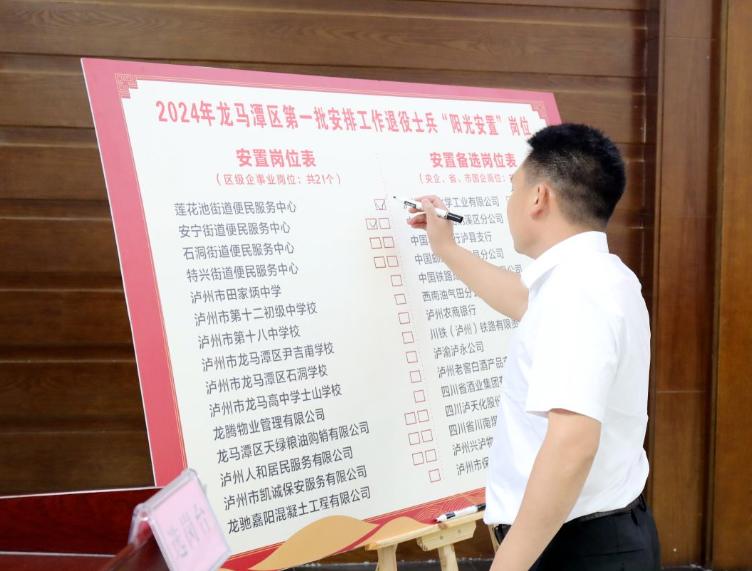 2024年龙马潭区第一批安排工作退役士兵“阳光安置”岗位
安置岗位表
(区级企事业岗位:共21个)
莲花池街道便民服务中心
安宁街道便民服务中心
石洞街道便民服务中心
特兴街道便民服务中心
泸州市田家炳中学
泸州市第十二初级中学校
泸州市第十八中学校
泸州市龙马潭区尹吉甫学校
泸州市龙马潭区石洞学校
泸州市龙马高中学士山学校
龙腾物业管理有限公司
龙马潭区天绿粮油购销有限公司
泸州人和居民服务有限公司
泸州市凯诚保安服务有限公司
龙驰嘉阳混凝土工程有限公司
安置备选岗位表
(央企、省、市国企岗位:
学工业有限公司
溪区分公司
行泸县支行
中国 县分公司
中国铁路
西南油气田分
泸州农商银行
川铁(泸州)铁路有限
泸渝泸永公司
泸州老窖白酒产品
四川省酒业集团有
四川泸天化股份
四川省川南
泸州兴泸
泸州市保
选岗台